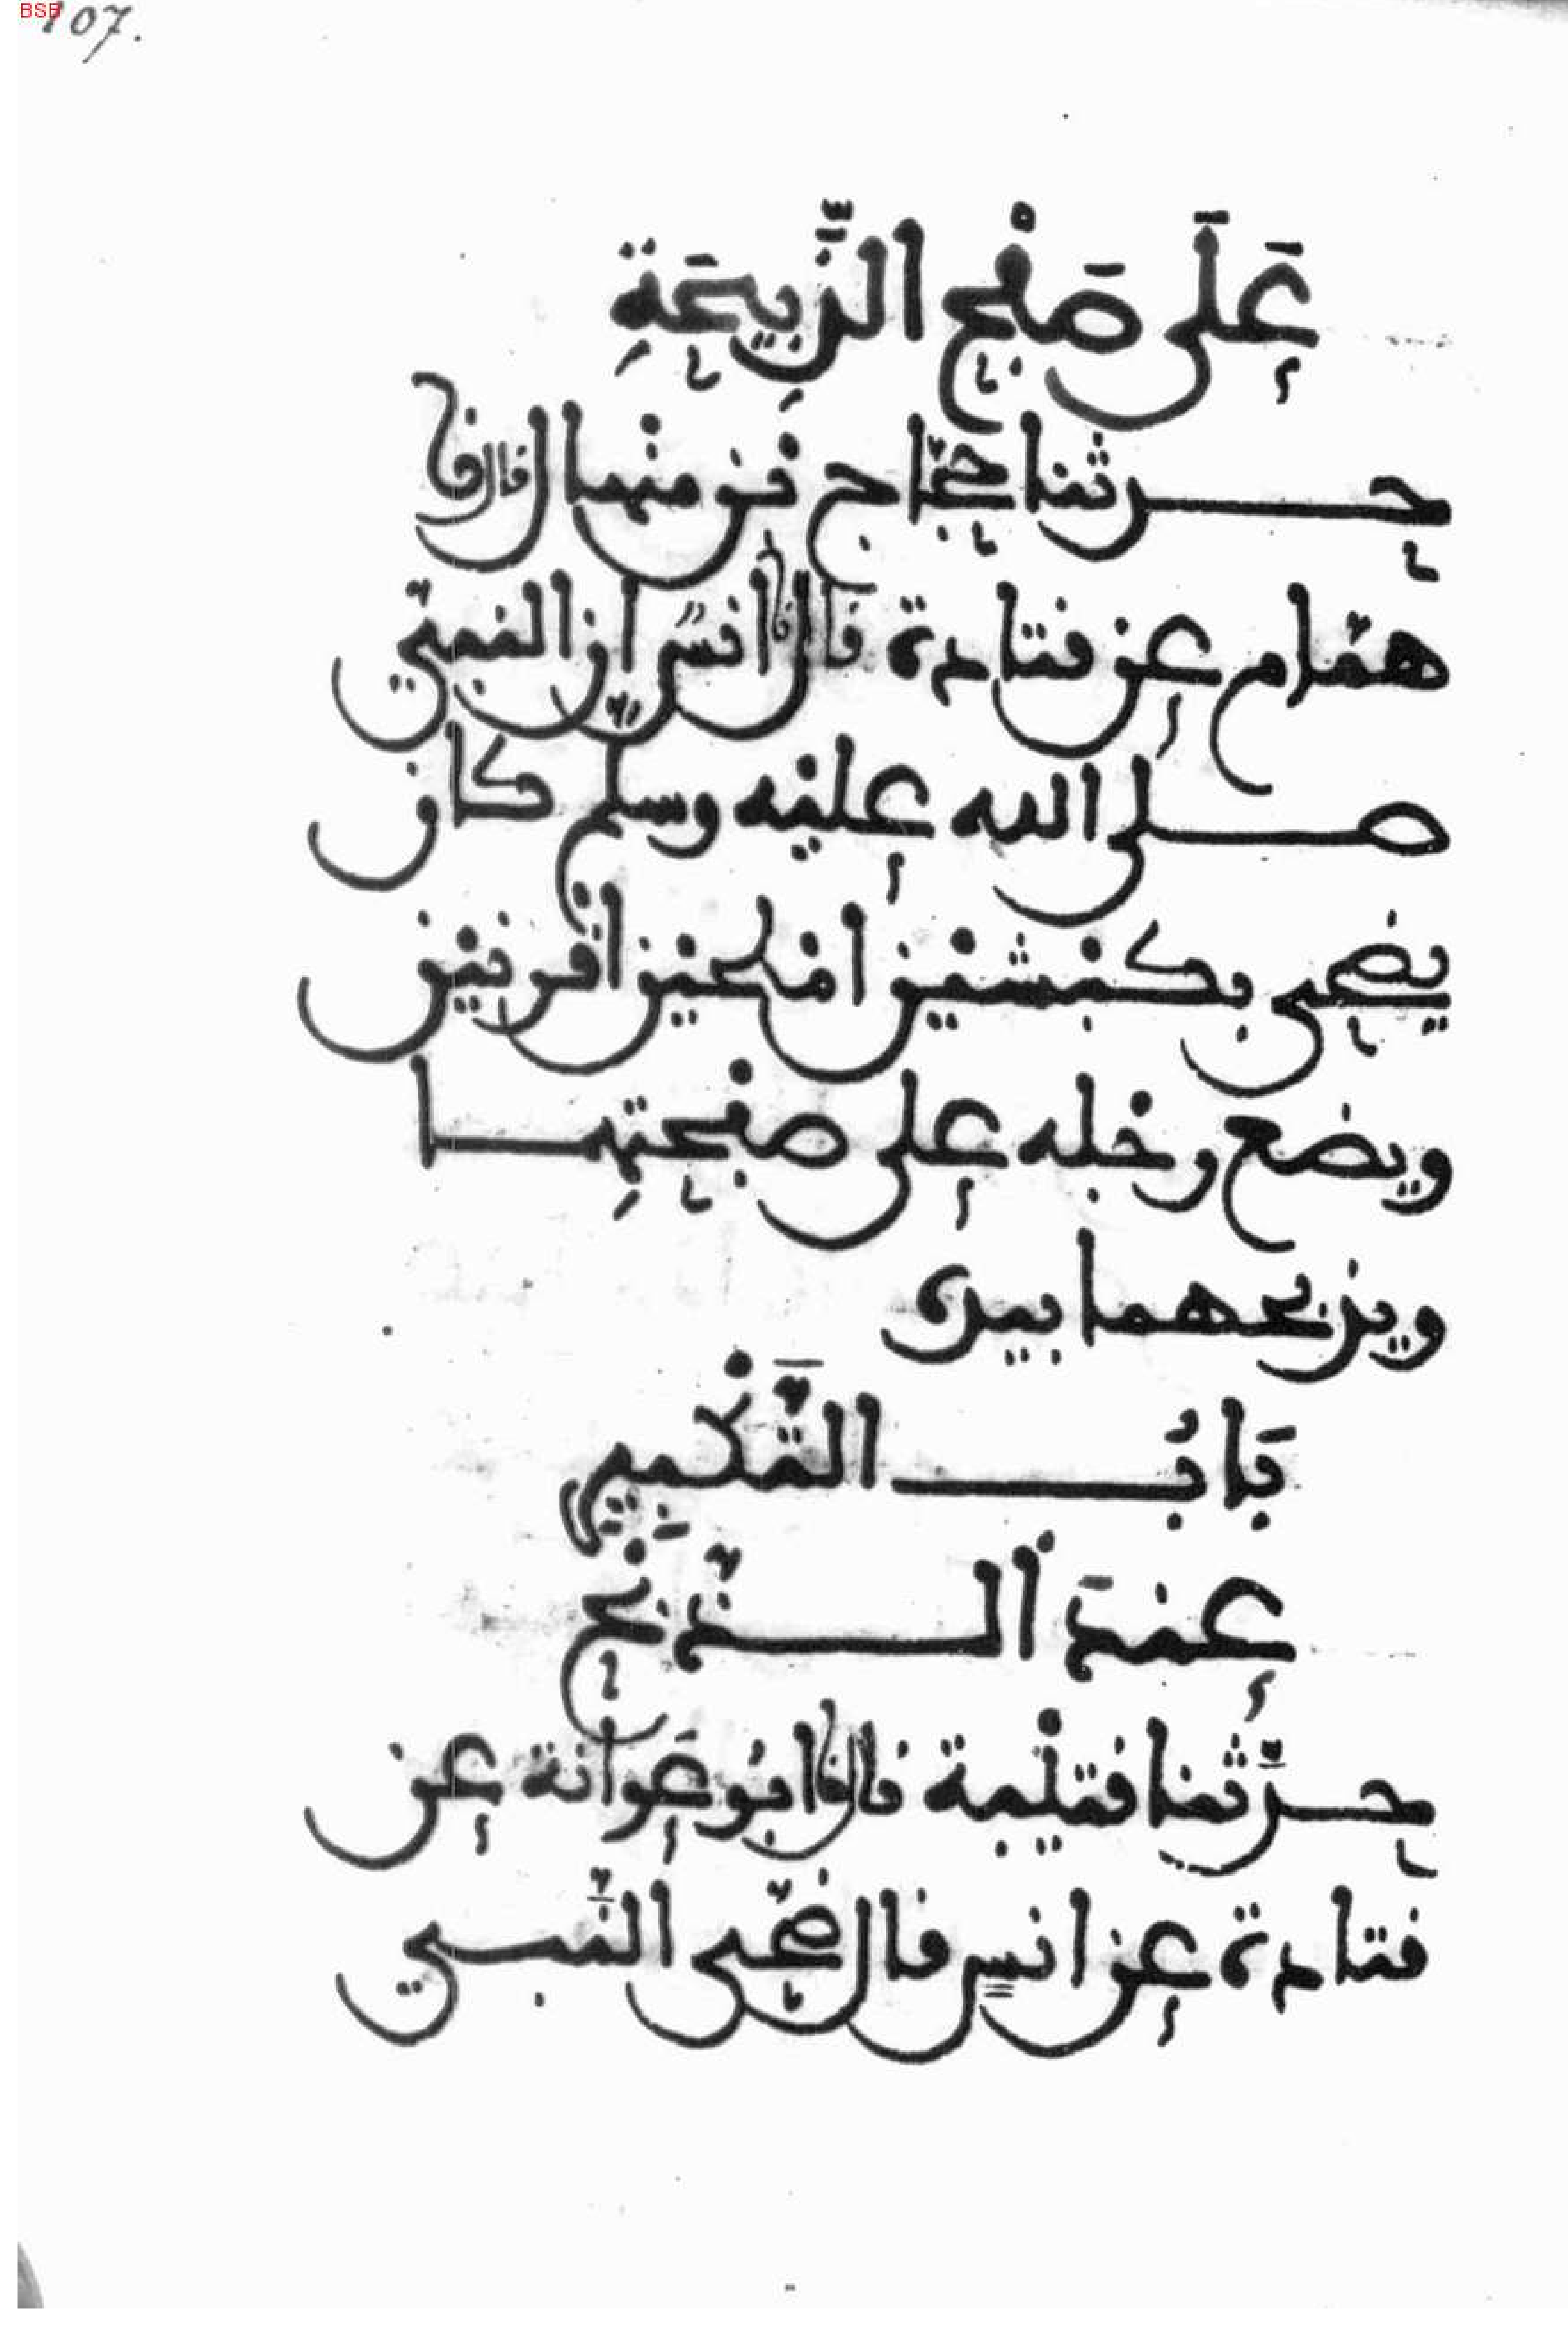 BSB
107.
عَلَى صَفْحِ الذَّبِيحَةِ
حدثنا حجّاج بن منهال قال نا
همّام عن قتادة قال نا أنسٌ ان النبيّ
صلى الله عليه وسلم كان
يضحى بكبشين املحين اقرنين
ويضع رجله على صفحتِهما
ويذبحهما بيده
بَابُ التَّكْبِيرِ
عِندَ الذّبْح
حدّثنا قتيْبة قال نا ابو عَوانة عن
قتادة عن انسٍ قال ضحّى النّبي